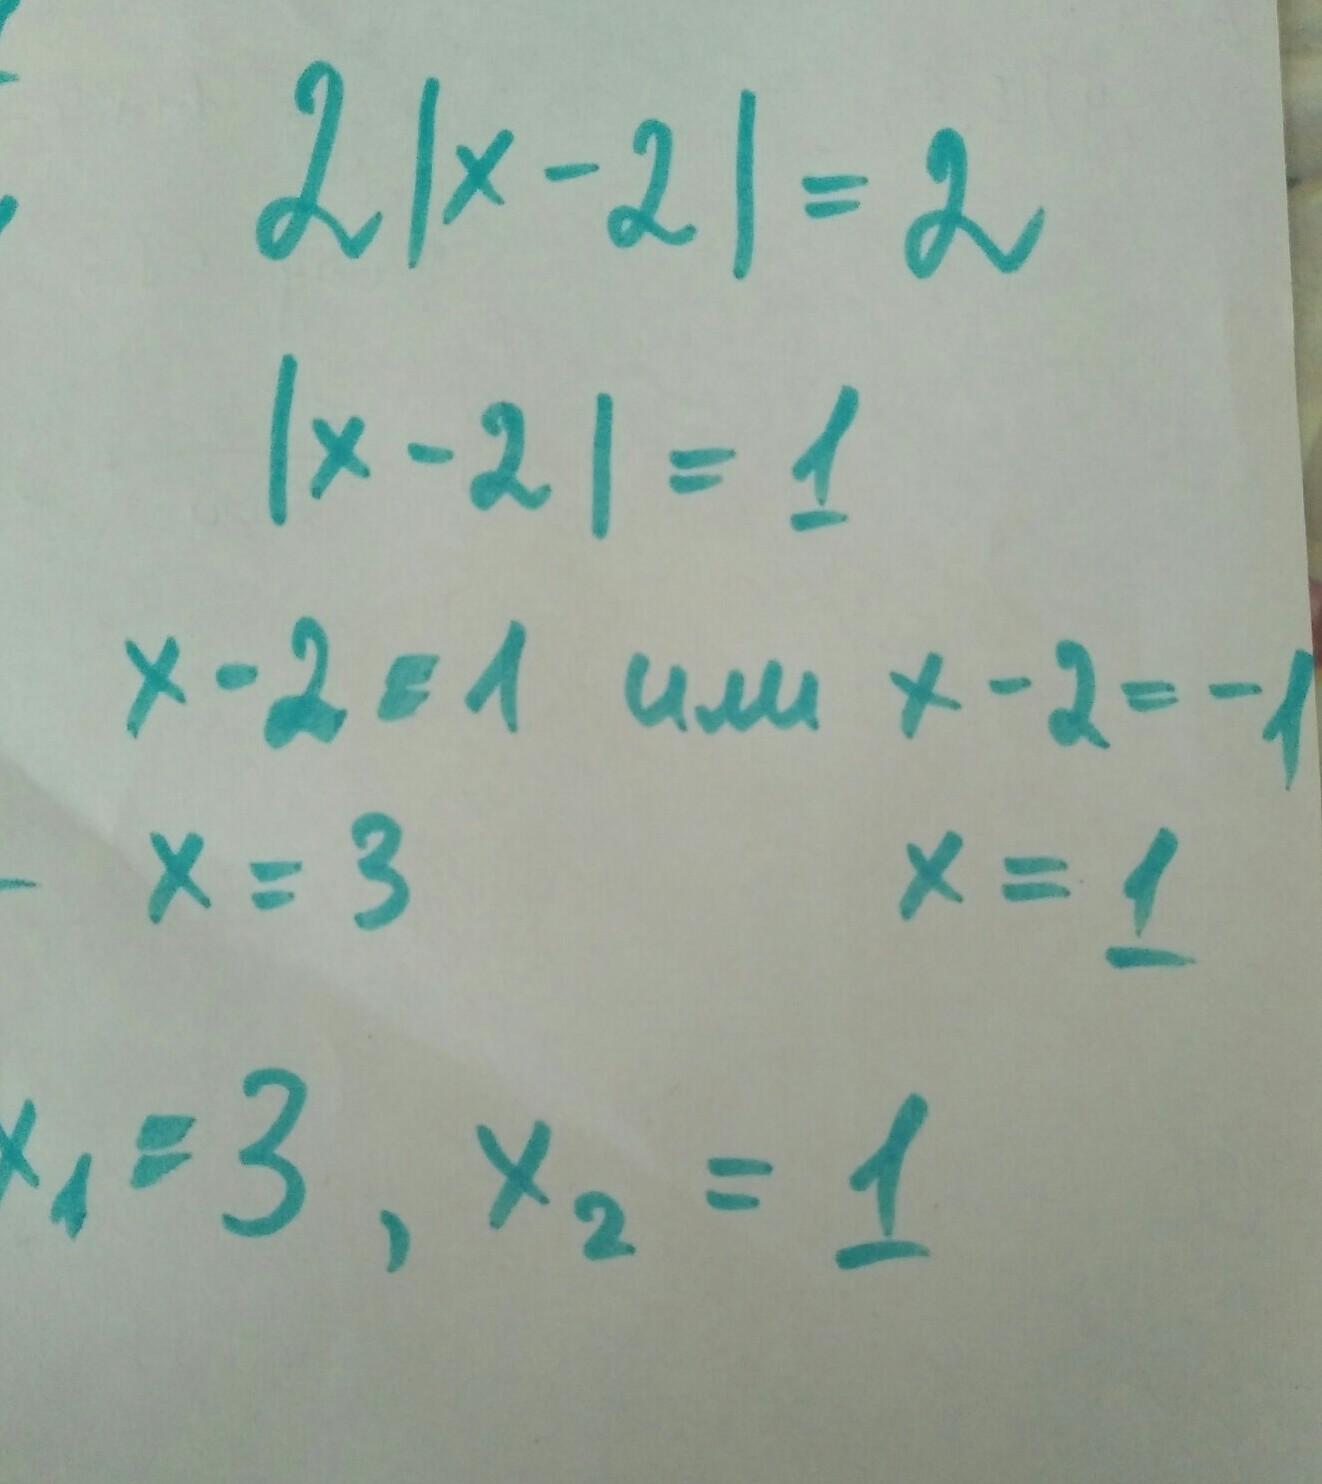 2|x-2|=2
|x-2|=1
x-2=1 или x-2=-1
x=3 x=1
x₁=3, x₂=1